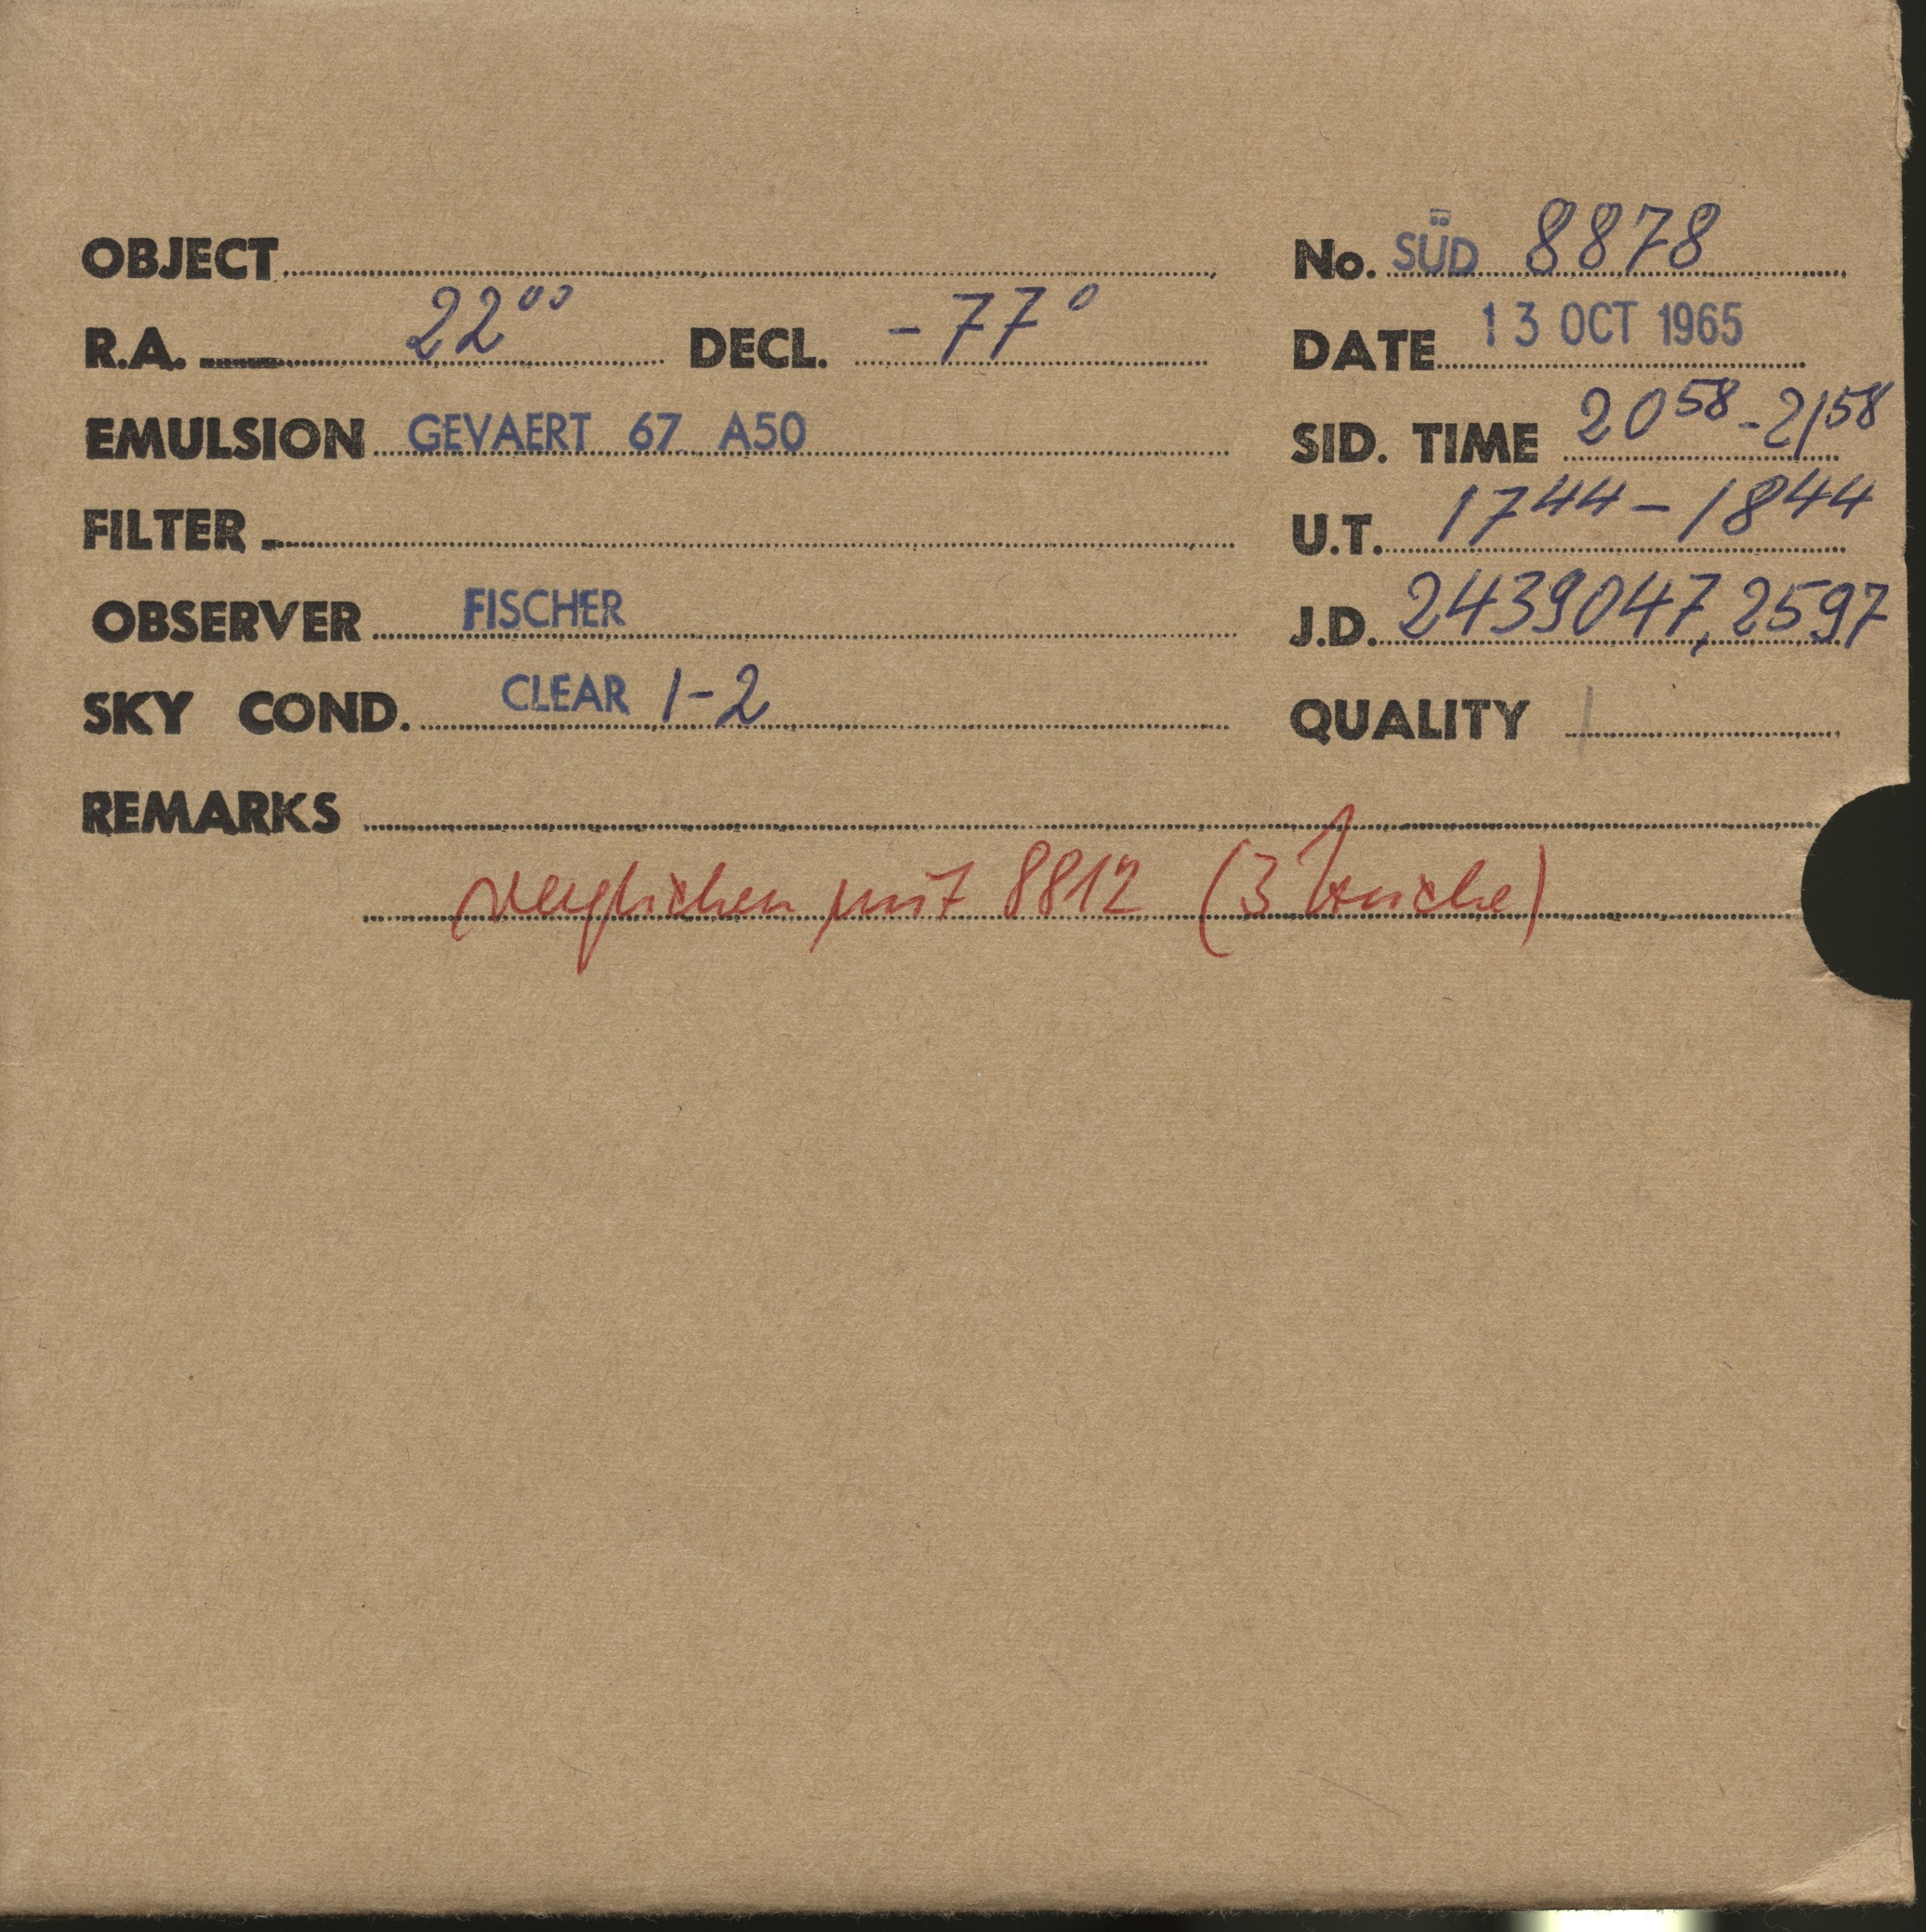 OBJECT
No. SÜD 8878
R.A. 22⁰⁰ DECL. -77°
DATE 13 OCT 1965
EMULSION GEVAERT 67 A50
SID. TIME 20⁵⁸-21⁵⁸
FILTER
U.T. 17⁴⁴-18⁴⁴
OBSERVER FISCHER
J.D. 2439047,2597
SKY COND. CLEAR 1-2
QUALITY 1
REMARKS
verglichen mit 8812 (3